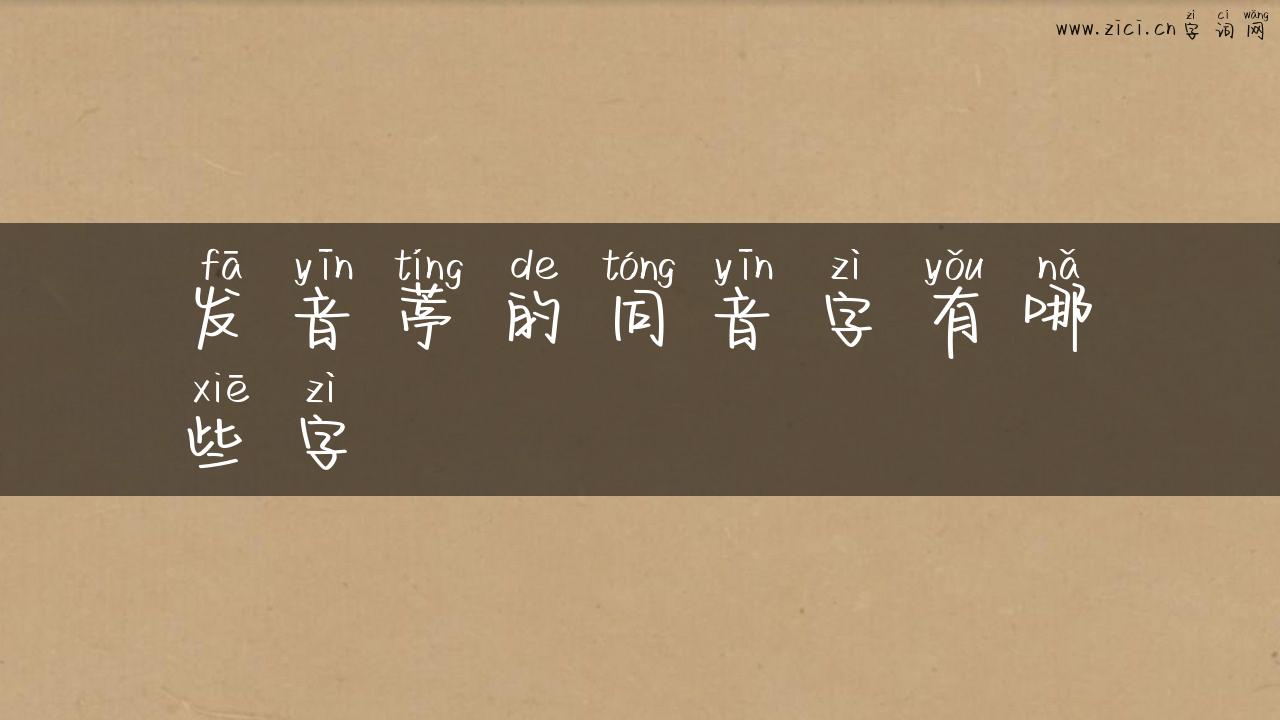 www.zici.cn zì cí wǎng
字词网
fā yīn tíng de tóng yīn zì yǒu nǎ
发音葶的同音字有哪
xiē zì
些字